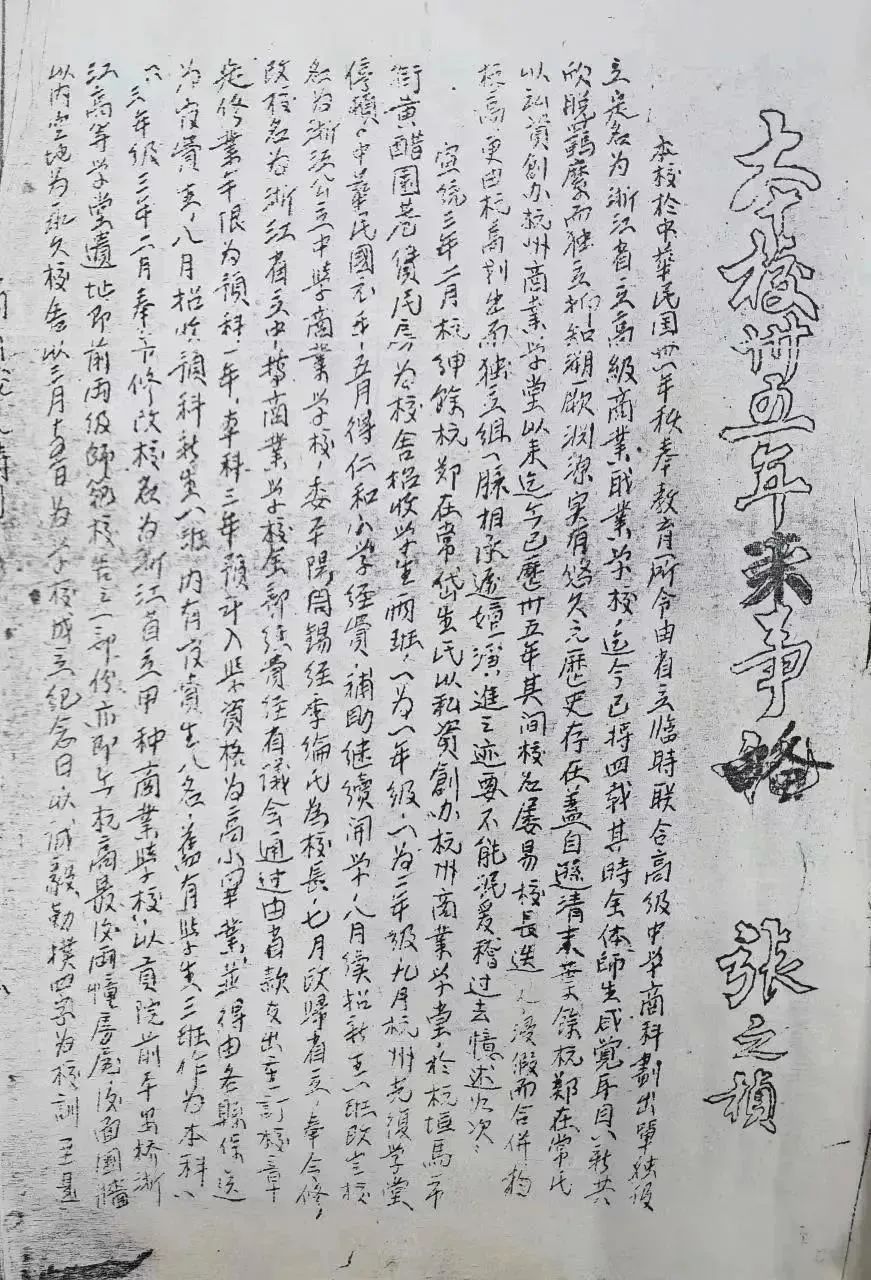 本校卅五年来事略
张之桢
本校於中華民国卅一年秋奉教育所令由省立临時联合高級中学商科劃出單独设
立定名为浙江省立高級商業职業学校，迄今已将四载其時全体師生咸觉耳目一新共
欣脱羁縻而独立抑知溯厥渊源实有悠久之歷史存在盖自遜清末葉餘杭鄭在常氏
以私資創办杭州商業学堂以来迄今已歷卅五年其间校名屡易校长迭浸假而合併於
杭高更由杭高划出而独立组一脉相承遞嬗演進之迹要不能泯爰稽过去憶述次
宣统三年二月杭紳餘杭郑在常岱生氏以私資創办杭州商業学堂，於杭垣馬市
街黄醋園巷僦民房为校舍招收学生兩班，一为一年級，一为二年級，九月杭州光復学堂
停頓，中華民國元年，五月得仁和小学经费，補助继续開学，八月续招新生一班改堂校
名为浙江公立中等商業学校，委平陽周锡经季綸氏为校長，七月改歸省立，奉令修，
改校名为浙江省立中等商業学校全部经费经省議会通过由省款支出重訂校章
定修業年限为預科一年，本科三年預科入学资格为高小畢業並得由各縣保送
为官費生，八月招收預科新生一班内有官费生八名，舊有学生三班作为本科一
二三年級三年二月奉令修改校名为浙江省立甲种商業学校，以貢院前平安桥浙
江高等学堂遺址即前兩級師範校舍之一部份亦即今杭高最後兩幢房屋，後面圍牆
以内空地为永久校舍以三月十五日为学校成立纪念日以诚毅勤樸四字为校訓至是